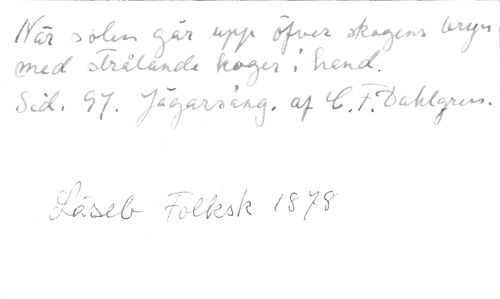 När solen går upp öfver skogens bryn
med strålande koger i hand.
Sid. 97. Jägarsång. af C. F. Dahlgren.
Läseb Folksk 1878